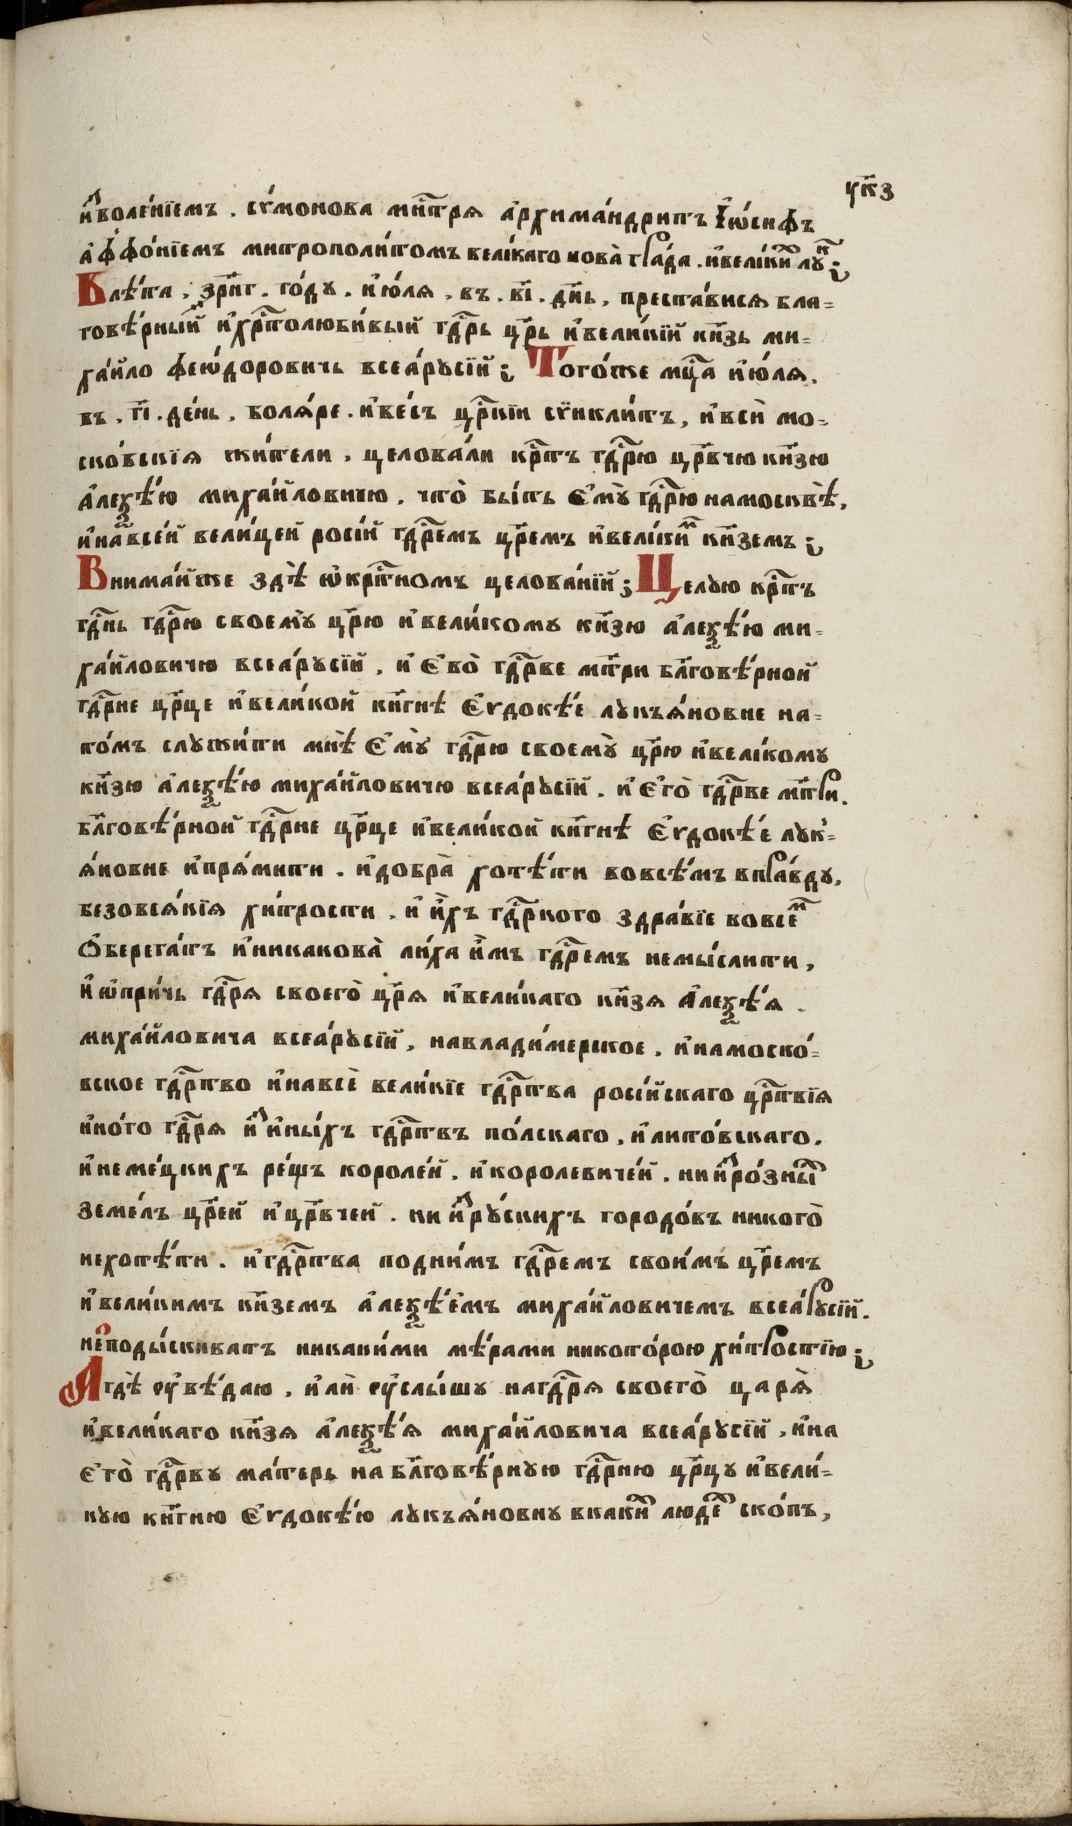 укз
и҆зволе́нїемъ . сѵ́монова мн҃тря а҆рхима́ндритъ І҆ѡ́сифъ
а҆ффо́нїемъ митрополи́томъ вели́каго нова̀ гра́да . и҆вели́ких лу́к ;
Влѣ́та . зр҃нг . го́ду . и҆ю́ля . въ . в҃і . дн҃ь , преста́вися бла-
говѣ́рный и҆хр҃толюби́вый гд҃рь цр҃ь и҆вели́кїй кн҃зь ми-
ха́йло феѡ́доровичь всеа́рꙋсїй ; Того́же мц҃а и҆ю́ля .
въ . г҃і . де́нь . боля́ре . и҆ве́сь цр҃кїи сѵ́нклитъ , и҆всѝ мо-
ско́вскїя жи́тели , целова́ли кр҃тъ гд҃рю цр҃вчю кн҃зю
а҆леѯѣ́ю миха́йловичю . что̀ бы́ть е҆мꙋ̀ гд҃рю намосквѣ̀ ,
и҆навсе́й вели́цей росі́й гд҃ремъ цр҃емъ и҆вели́ким кн҃земъ ;
Внима́йже здѣ̀ ѡ҆кр҃тномъ целова́нїй ; Целꙋ́ю кр҃тъ
гд҃нь гд҃рю своемꙋ̀ цр҃ю и҆вели́кому кн҃зю а҆леѯѣ́ю ми-
ха́йловичю всеа́рꙋсїй , и҆ е҆во̀ гд҃рве мт҃ри бл҃говѣ́рной
гд҃рне цр҃це и҆вели́кой кн҃гнѣ е҆ѵдокѣ́е лукъя́новне на-
томъ служи́ти мнѣ̀ е҆мꙋ̀ гд҃рю своемꙋ̀ цр҃ю и҆вели́кому
кн҃зю а҆леѯѣ́ю миха́йловичю всеа́рꙋсїй . и҆ е҆го̀ гд҃рве мт҃ри .
бл҃говѣ́рной гд҃рне цр҃це и҆вели́кой кн҃гнѣ е҆ѵдокѣ́е лук-
я́новне и҆пря́мити . и҆добра̀ хотѣ́ти вовсе́мъ впра́вду ,
безовся́кїя хи́трости , и҆ и҆́хъ гд҃рского здра́вїе вовсе́м
ѻ҆берега́тъ и҆никакова̀ ли́ха и҆́мъ гд҃ремъ немы́слити ,
и҆ ѡ҆при́чь гд҃ря своего̀ цр҃я и҆вели́каго кн҃зя а҆леѯѣ́я .
миха́йловича всеа́рꙋсїй , навлади́мерское . и҆намоско́-
вское гд҃рство и҆навсѐ вели́кїе гд҃рства росі́йскаго цр҃ствїя
и҆но́го гд҃ря и҆з и҆ны́хъ гд҃рствъ по́лскаго , и҆лито́вскаго .
и҆неме́цкихъ ре́шъ короле́й . и҆королеви́чей . ни и҆зро́зных
земе́лъ цр҃ей и҆цр҃вчей . ни и҆зрꙋ́скихъ городо́въ никого̀
нехотѣ́ти . и҆гд҃рства подни́мъ гд҃ремъ свои́мъ цр҃емъ
и҆вели́кимъ кн҃земъ а҆леѯѣ́емъ миха́йловичемъ всеа́рꙋсїй .
неподы́скиватъ никаки́ми мѣ́рами никото́рою хи́тростїю ;
Агдѣ̀ ᲂу҆вѣ́даю , и҆лѝ ᲂу҆слы́шу нагд҃ря своего̀ царя̀
и҆вели́каго кн҃зя а҆леѯѣ́я миха́йловича всеа́рꙋсїй , и҆на
е҆го̀ гд҃рву ма́терь на бл҃говѣ́рную гд҃рню цр҃цу и҆вели́-
кую кн҃гню е҆ѵдокѣ́ю лукъя́новну вкаки́х люде́х ско́пъ ,